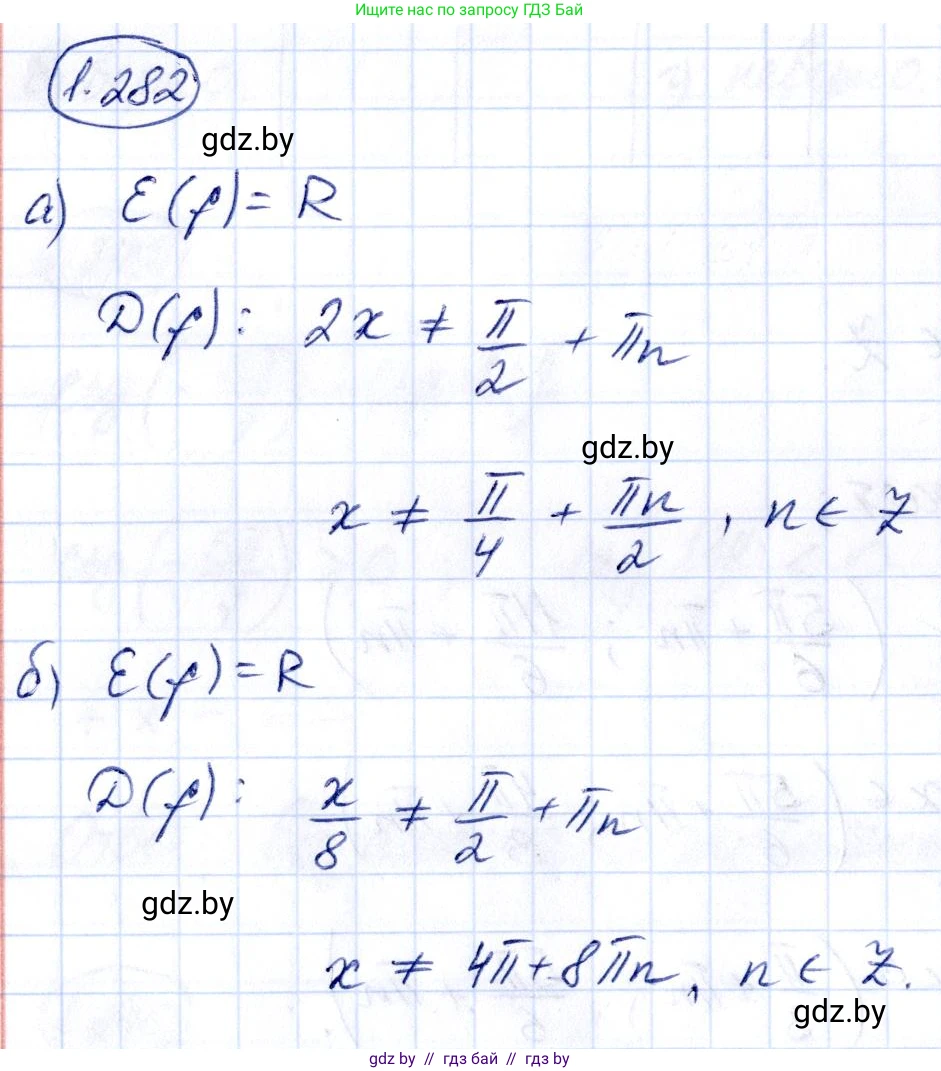 Ищите нас по запросу ГДЗ Бай
1.282
gdz.by
а) E(f) = R
D(f): 2x ≠ π/2 + πn
gdz.by
x ≠ π/4 + πn/2, n ∈ Z
б) E(f) = R
D(f): x/8 ≠ π/2 + πn
gdz.by
x ≠ 4π + 8πn, n ∈ Z.
gdz.by
gdz by // гдз бай // gdz by